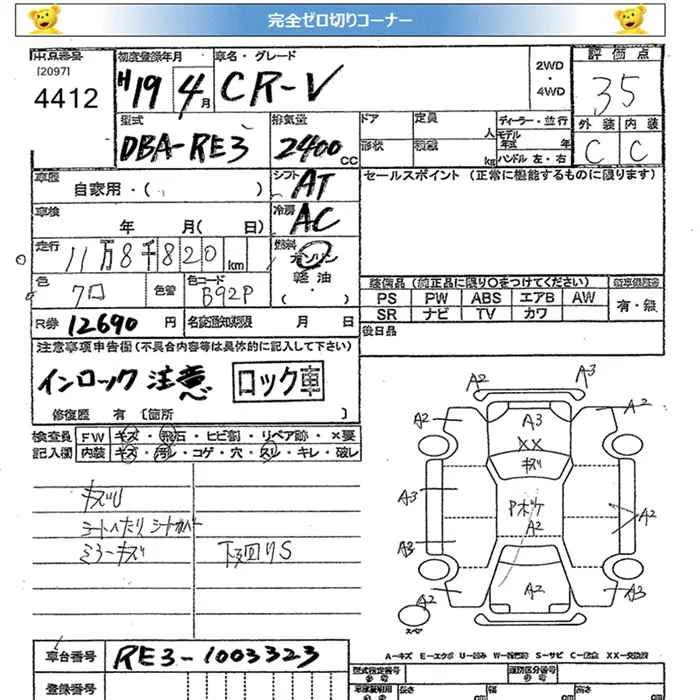 完全ゼロ切りコーナー
出品番号 初度登録年月 車名・グレード 2WD ・ 4WD 評価点
[2097]
4412 H19 4月 CR-V 35
型式 排気量 ドア 定員 人 ディーラー・並行 外装 内装
DBA-RE3 2400CC 形状 積載 kg モデル年式 年 C C
ハンドル 左・右
車歴 自家用・( ) シフト AT セールスポイント (正常に機能するものに限ります)
車検 年 月( 日) 冷房 AC
走行 11万8千820km 燃料 ガソリン
軽油
・( )
色 クロ 色替 色コード B92P 装備品 (純正品に限り○をつけてください)
PS PW ABS エアB AW 有・無
SR ナビ TV カワ
R券 12690円 名変通知期限 月 日 後日品
注意事項申告欄(不具合内容等は具体的に記入して下さい)
インロック注意 ロック車
修復歴 有 [箇所 ]
検査員 FW キズ・飛石・ヒビ割・リペア跡・×要
記入欄 内装 キズ・汚レ・コゲ・穴・スリ・キレ・破レ
キズU
シートへたり シートカバー
ミラーキズ 下廻りS
A2 A3
A2 A3 A2
XX
キズ
A3 Pボケ A2
A2
A3
A2 A2 A3
スペア
A-キズ E-エクボ U-凹み W-補修跡 S-サビ C-腐食 XX-交換済
車台番号 RE3-1003323 型式指定番号 類別区分番号
登録番号 長さ cm 幅 cm 高さ cm